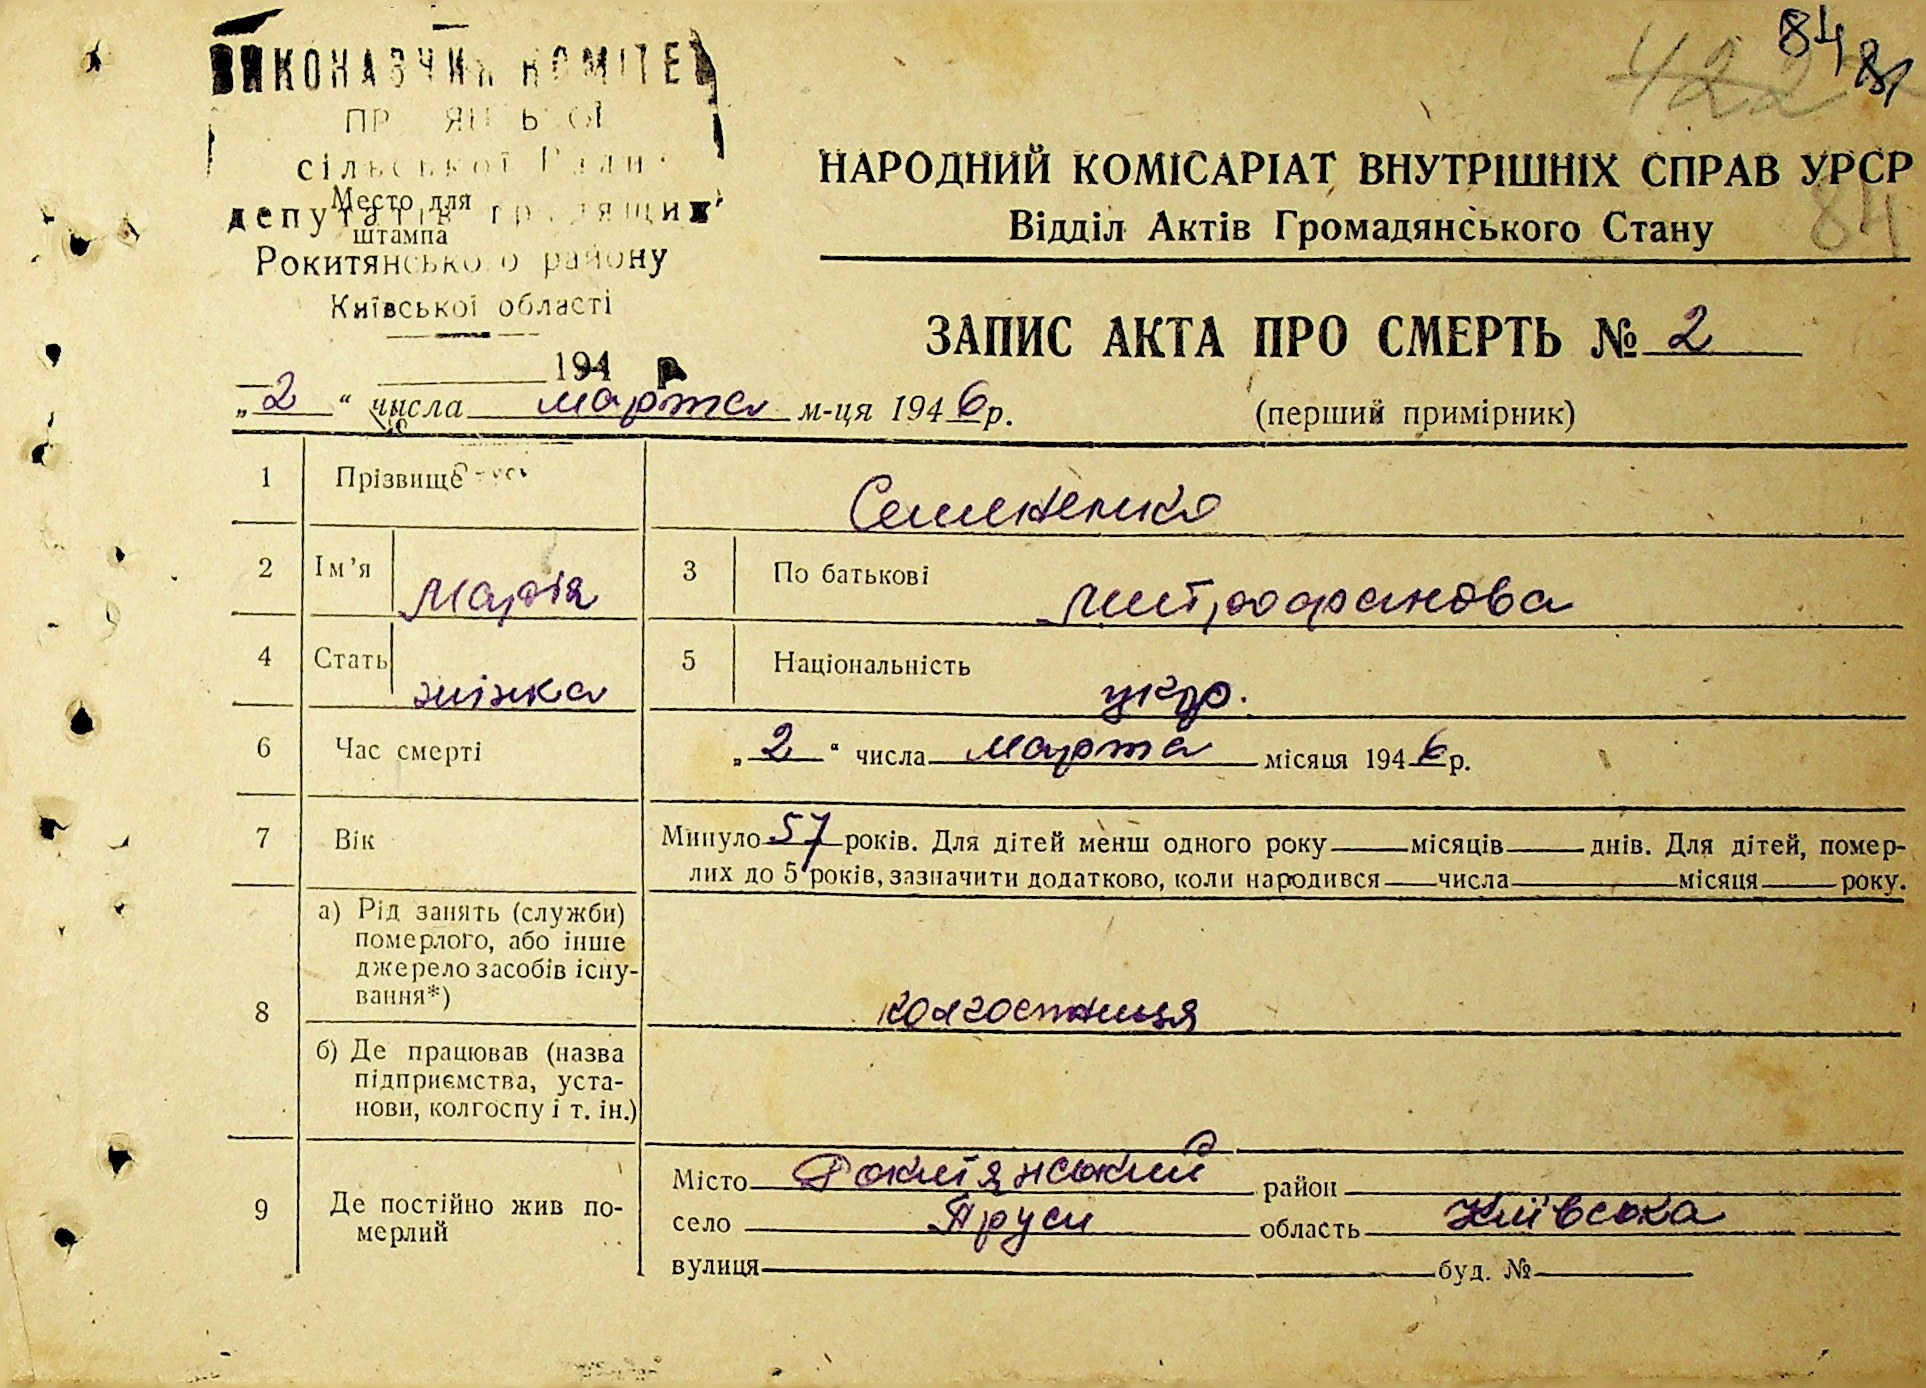 84 81
422
ВИКОНАВЧИЙ КОМІТЕ
сільської Ради
Место для
депутатів трудящих
штампа
Рокитянського району
Київської області
194 р
НАРОДНИЙ КОМІСАРІАТ ВНУТРІШНІХ СПРАВ УРСР
84
Відділ Актів Громадянського Стану
ЗАПИС АКТА ПРО СМЕРТЬ № 2
„2“ числа марта м-ця 1946 р.
(перший примірник)
1 Прізвище Семененко
2 Ім’я Марія 3 По батькові Митрофанова
4 Стать жінка 5 Національність укр.
6 Час смерті „2“ числа марта місяця 1946 р.
7 Вік Минуло 57 років. Для дітей менш одного року місяців днів. Для дітей, помер-
лих до 5 років, зазначити додатково, коли народився числа місяця року.
8 а) Рід занять (служби)
померлого, або інше
джерело засобів існу-
вання*)
колгоспниця
б) Де працював (назва
підприємства, уста-
нови, колгоспу і т. ін.)
9 Де постійно жив по-
мерлий
Місто Рокитянський район
село Пруси область Київська
вулиця буд. №